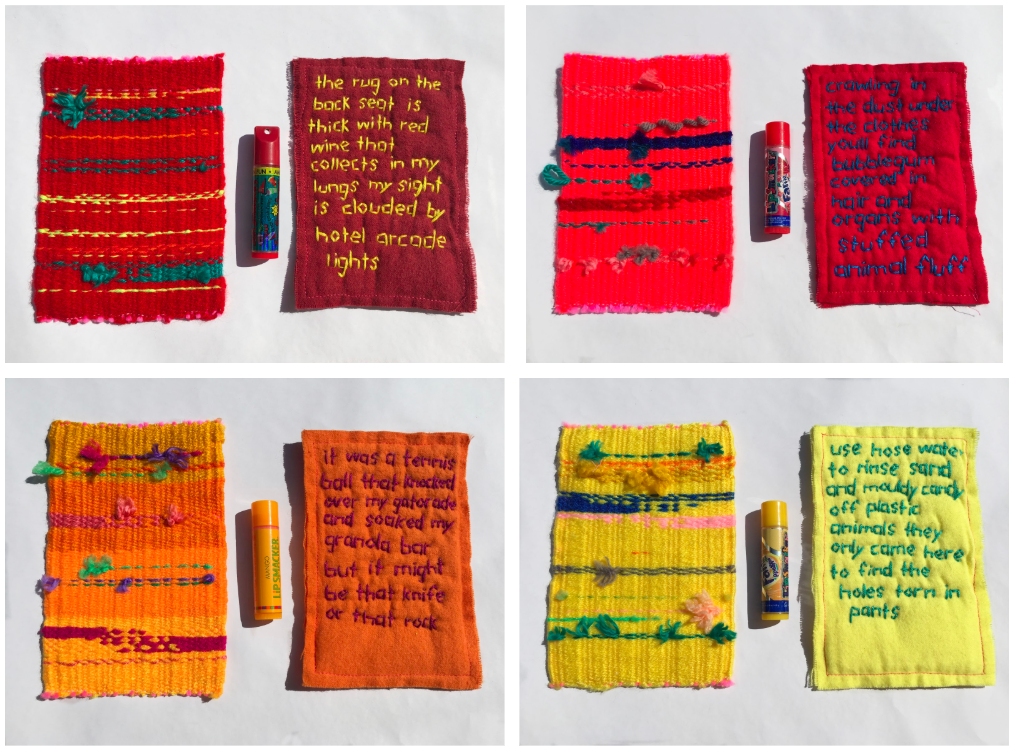 the rug on the
back seat is
thick with red
wine that
collects in my
lungs my sight
is clouded by
hotel arcade
lights
crawling in
the dust under
the clothes
youll find
bubblegum
covered in
hair and
organs with
stuffed
animal fluff
it was a tennis
ball that knocked
over my gatorade
and soaked my
granola bar
but it might
be that knife
or that rock
MANGO
LIP SMACKER
use hose water
to rinse sand
and mouldy candy
off plastic
animals they
only came here
to find the
holes torn in
pants